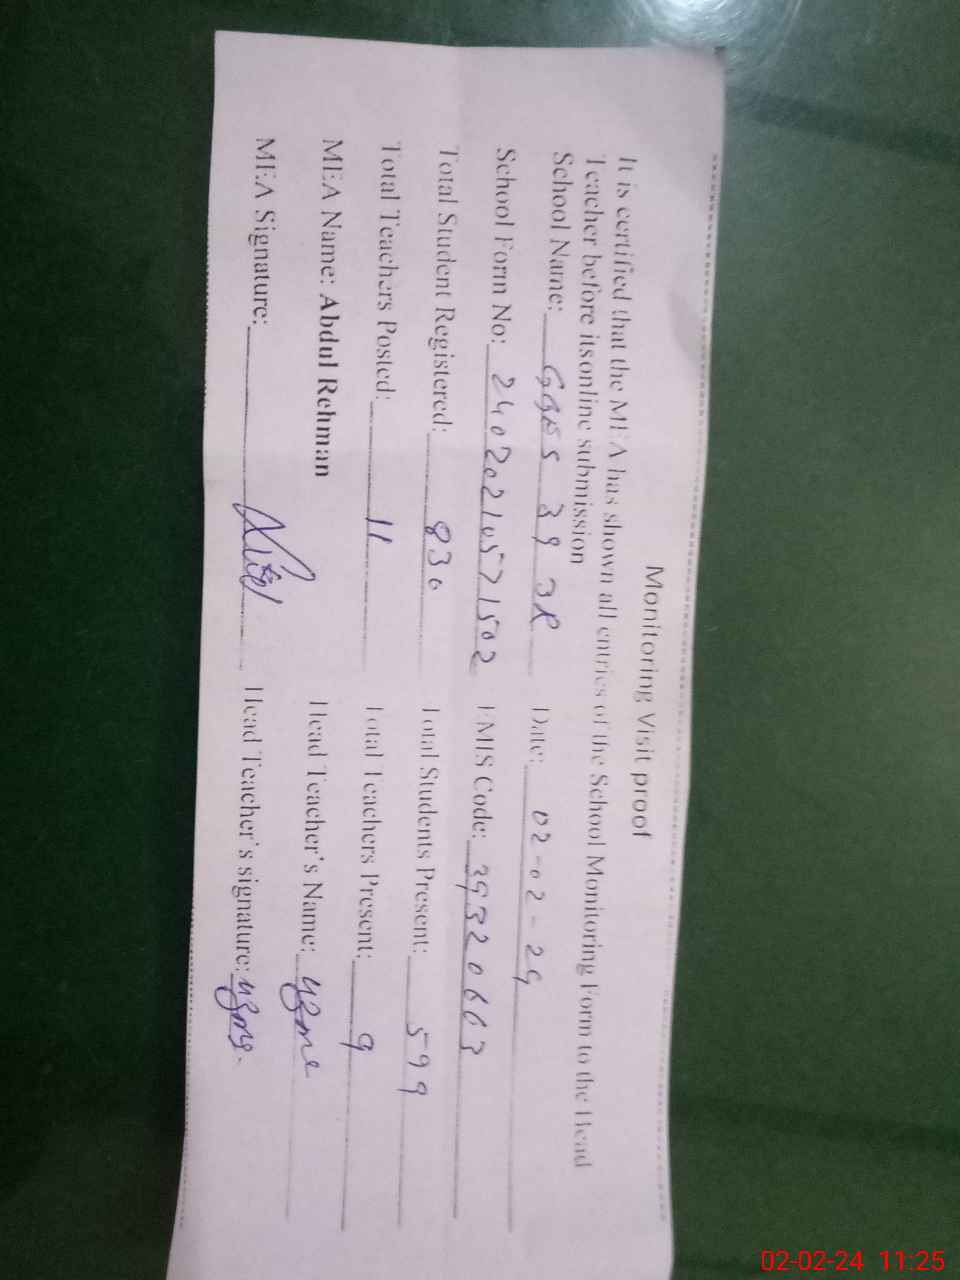 Monitoring Visit proof
It is certified that the MEA has shown all entries of the School Monitoring Form to the Head
Teacher before itsonline submission
School Name: 39 3R Date: 02-02-24
School Form No: 24020210571502 EMIS Code: 39320663
Total Student Registered: 830 Total Students Present: 599
Total Teachers Posted: 11 Total Teachers Present: 9
MEA Name: Abdul Rehman Head Teacher's Name: Uzma
MEA Signature: Head Teacher's signature: Uzma
02-02-24 11:25